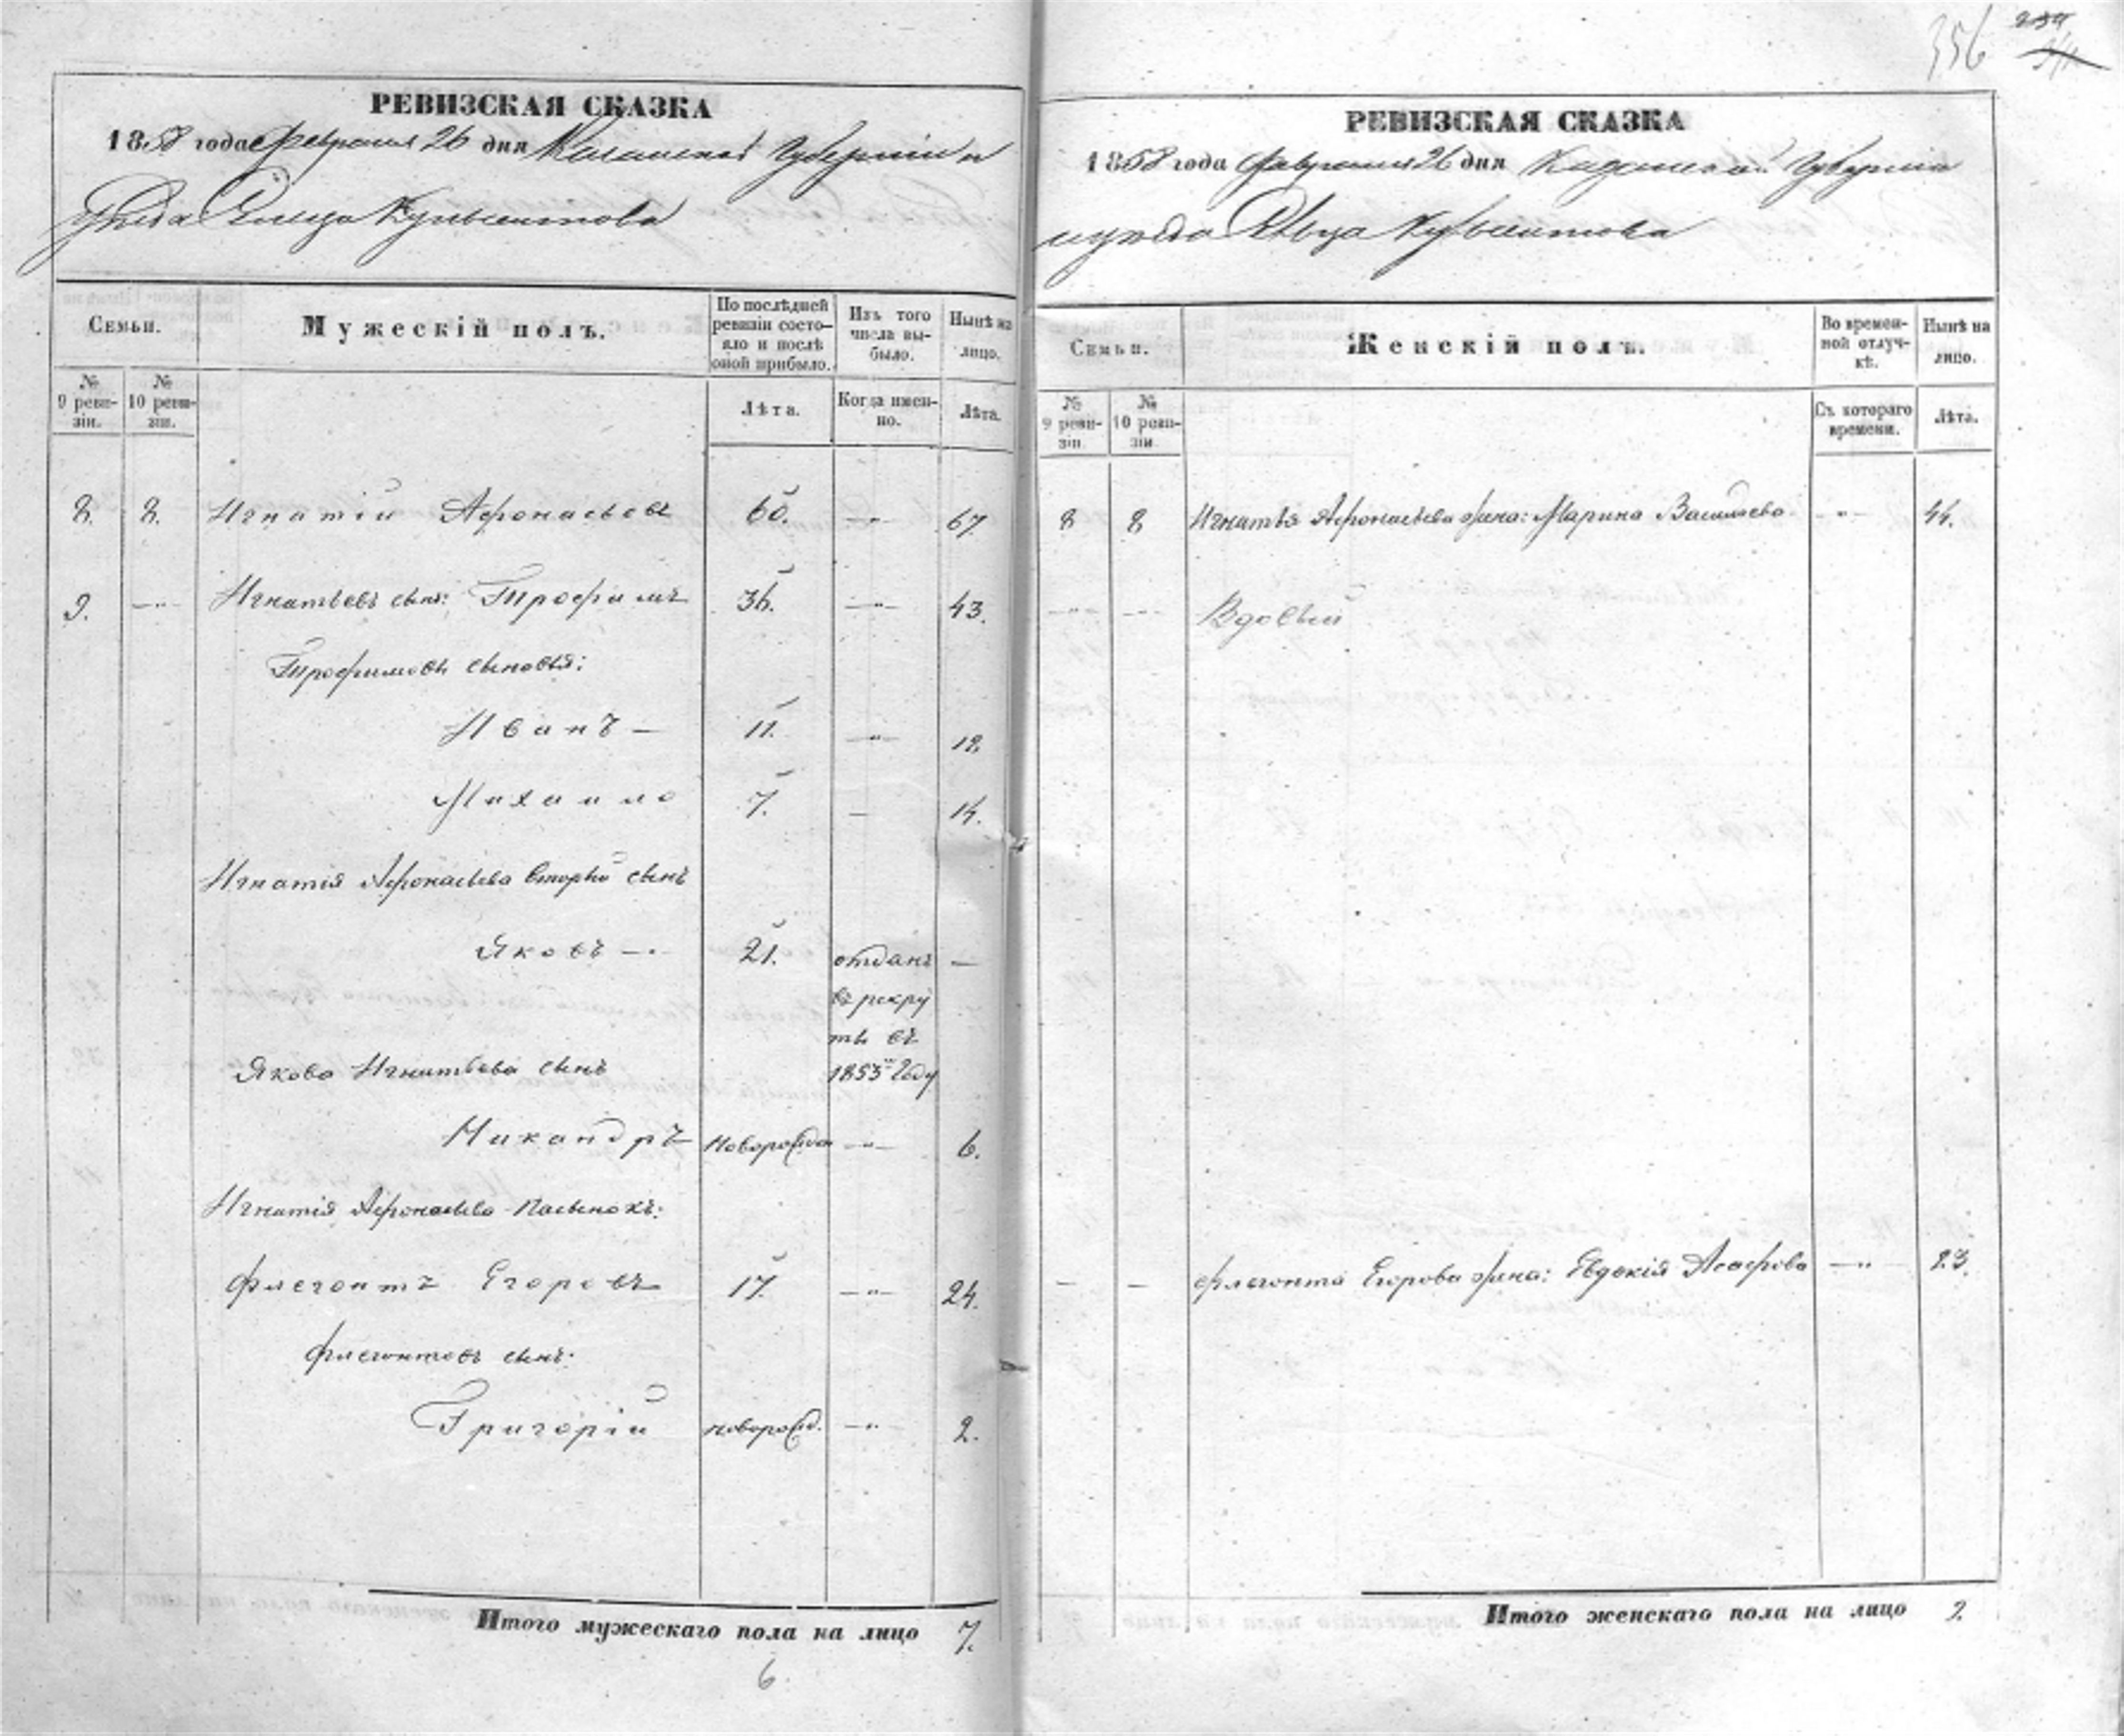 356
РЕВИЗСКАЯ СКАЗКА
1858 года Февраля 26 дня Казанской Губернiи и
уѣзда Сельца
Семьи.
Мужескiй полъ.
По послѣдней ревизiи состояло и послѣ оной прибыло.
Изъ того числа выбыло.
Нынѣ на лицо.
№ 9 ревизiи.
№ 10 ревизiи.
Лѣта.
Когда именно.
Лѣта.
8. 8. Игнатiй Афонасьевъ 60. —„— 67.
9. —„— Игнатьевъ сынъ: Трофимъ 36. —„— 43.
Трофимовы сыновья:
Иванъ — 11. —„— 18.
Михаило 7. — 14.
Игнатiя Афонасьева вторый сынъ
Яковъ —. 21. отданъ —
въ рекру
ты въ
1853 году
Якова Игнатьева сынъ
Никандръ новорожден —„— 6.
Игнатiя Афонасьева пасынокъ:
Флегонтъ Егоровъ 17. —„— 24.
Флегонтовъ сынъ:
Григорiй новорожд. —„— 2.
Итого мужескаго пола на лицо 7.
6.
РЕВИЗСКАЯ СКАЗКА
1858 года Февраля 26 дня Казанской Губернiи
и уѣзда
Семьи.
Женскiй полъ.
Во временной отлучкѣ.
Нынѣ на лицо.
№ 9 ревизiи.
№ 10 ревизiи.
Съ котораго времени.
Лѣта.
8 8 Игнатья Афонасьева жена: Марина Васильева —„— 44.
—„— —„— Вдовый
— — Флегонта Егорова жена: Евдокiя Асафова —„— 23.
Итого женскаго пола на лицо 2.